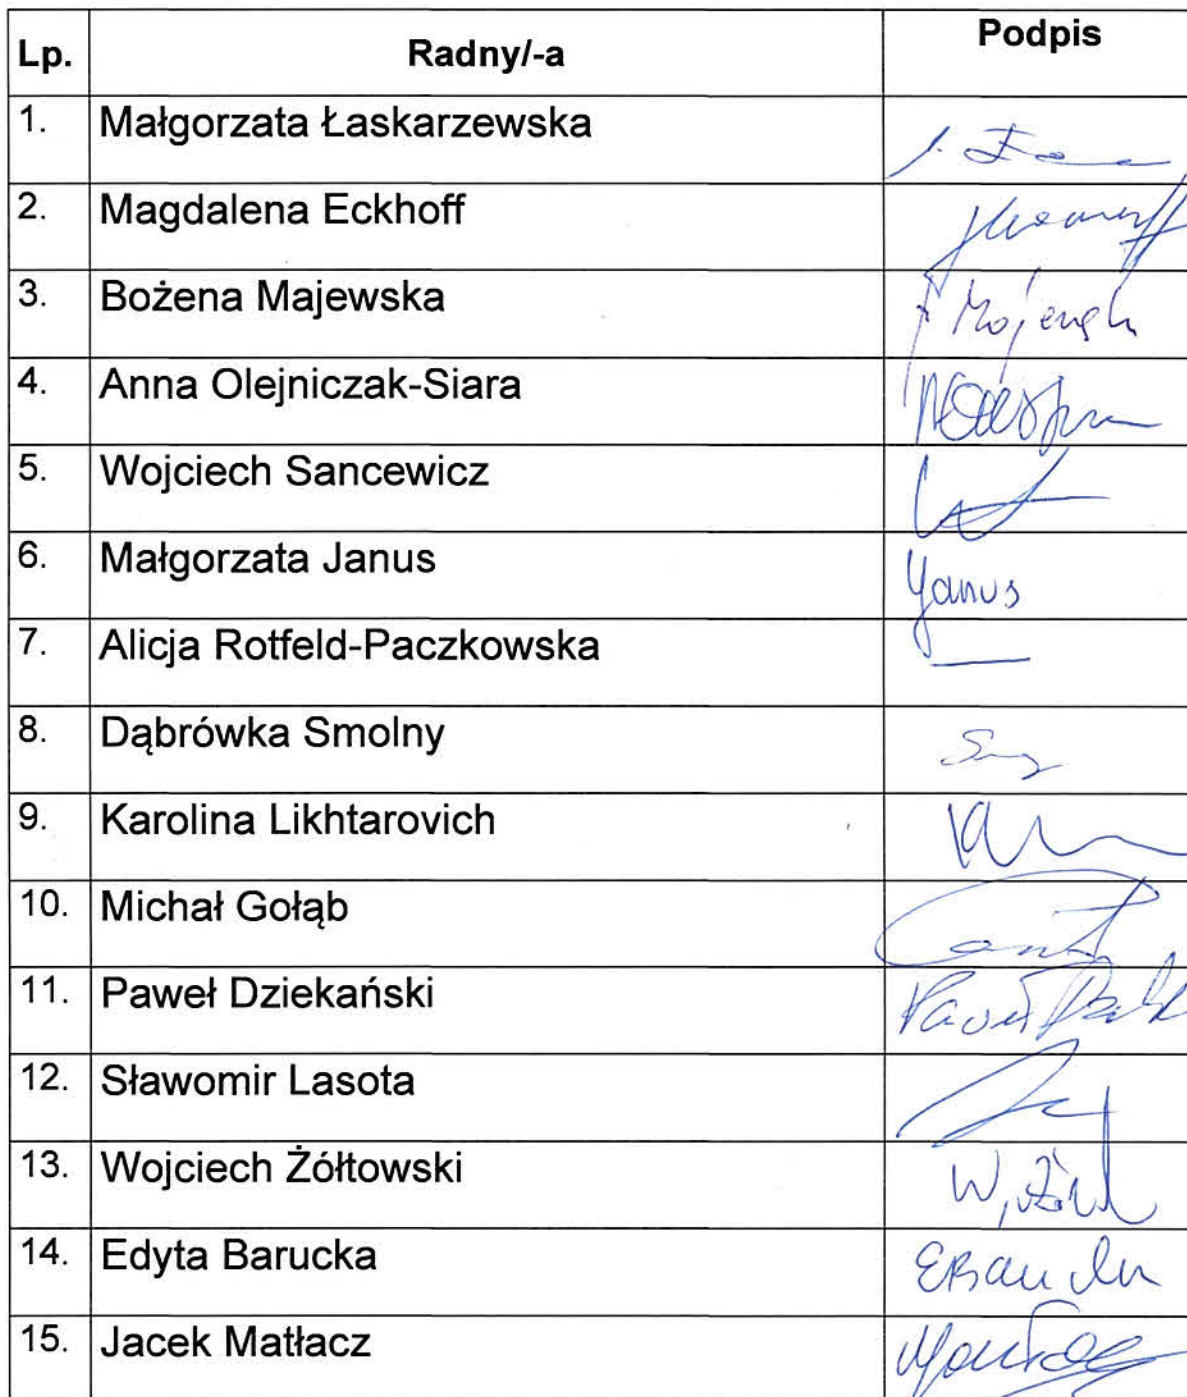 Lp. Radny/-a Podpis
1. Małgorzata Łaskarzewska
2. Magdalena Eckhoff
3. Bożena Majewska
4. Anna Olejniczak-Siara
5. Wojciech Sancewicz
6. Małgorzata Janus Janus
7. Alicja Rotfeld-Paczkowska —
8. Dąbrówka Smolny
9. Karolina Likhtarovich
10. Michał Gołąb
11. Paweł Dziekański Paweł
12. Sławomir Lasota
13. Wojciech Żółtowski
14. Edyta Barucka
15. Jacek Matłacz